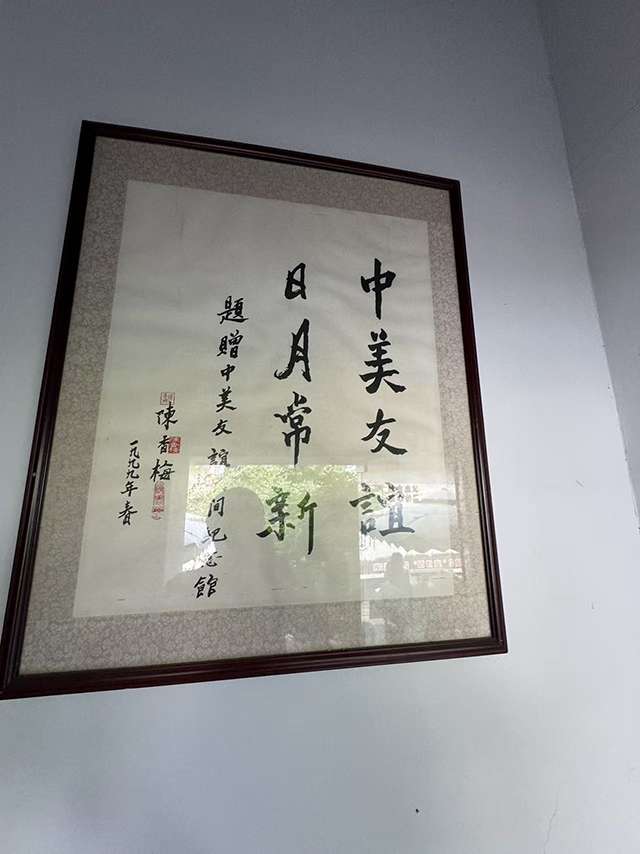 中美友誼
日月常新
題贈中美友誼 间纪念館
陳香梅
一九九九年春